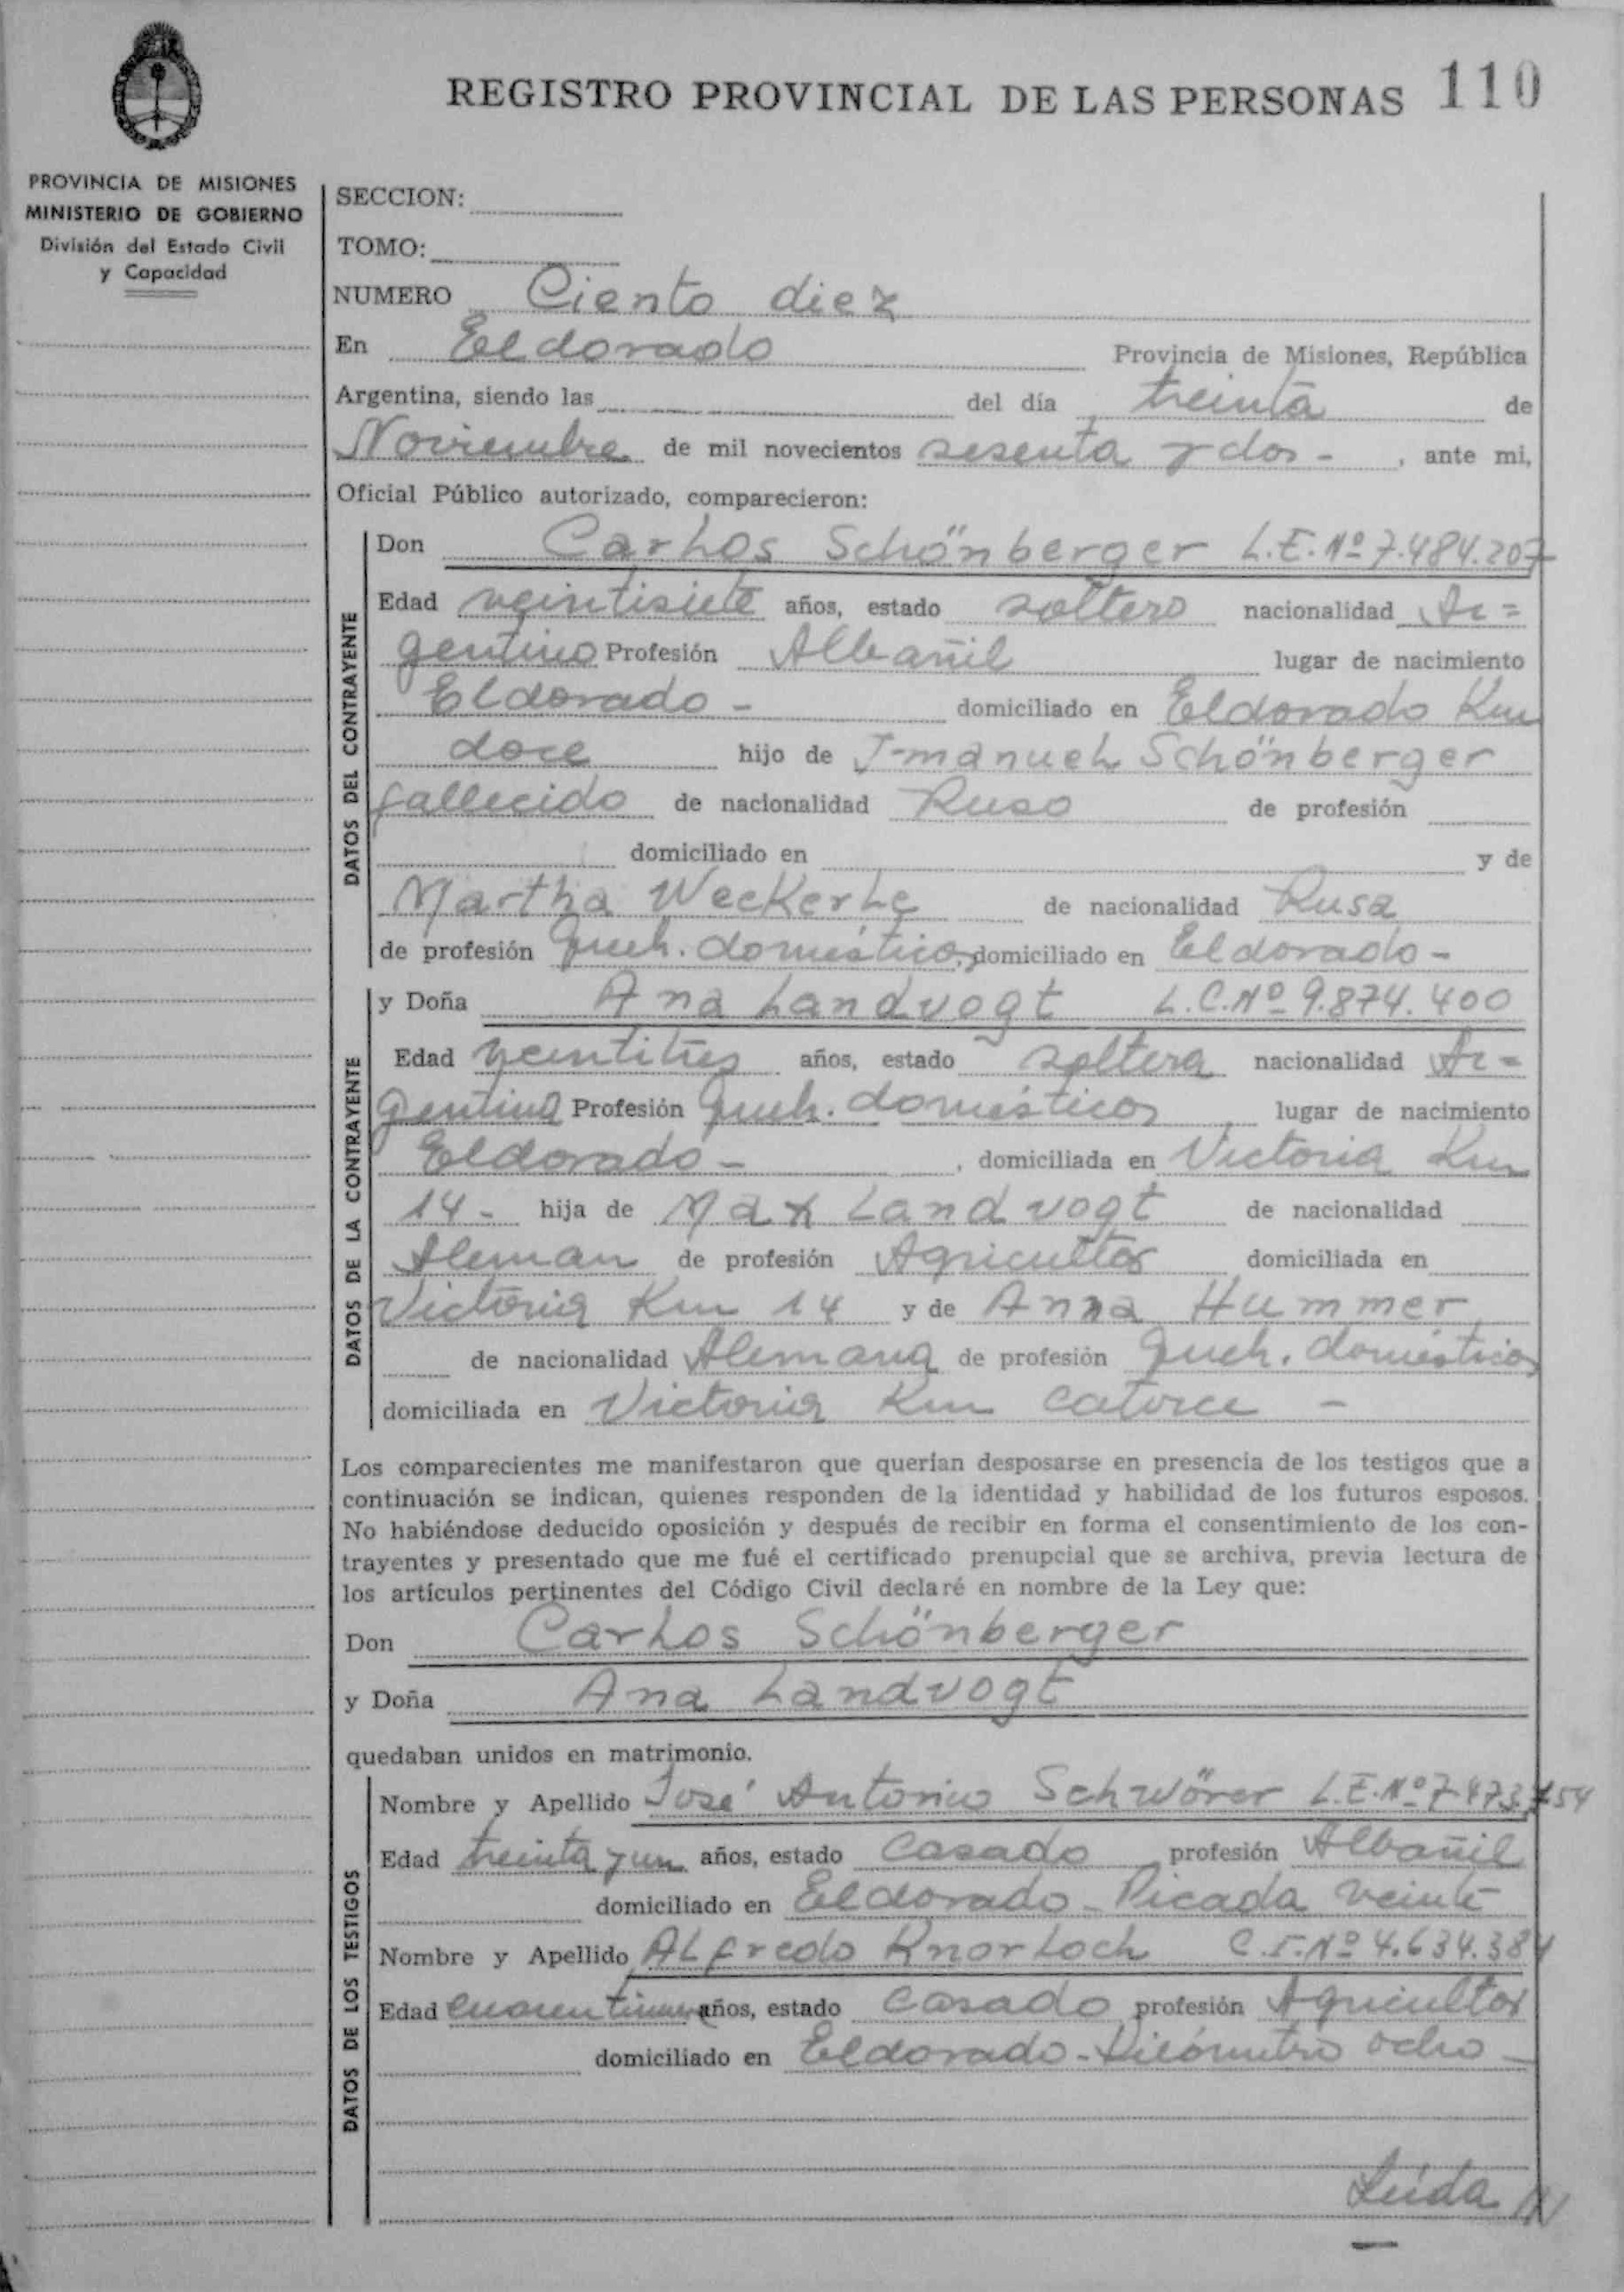 REGISTRO PROVINCIAL DE LAS PERSONAS 110
PROVINCIA DE MISIONES
MINISTERIO DE GOBIERNO
División del Estado Civil
y Capacidad
SECCION:
TOMO:
NUMERO Ciento diez
En Eldorado Provincia de Misiones, República
Argentina, siendo las del día treinta de
Noviembre de mil novecientos sesenta y dos - , ante mi,
Oficial Público autorizado, comparecieron:
DATOS DEL CONTRAYENTE
Don Carlos Schönberger L.E. Nº 7.484.207
Edad veintisiete años, estado soltero nacionalidad Ar=
gentino Profesión Albañil lugar de nacimiento
Eldorado - domiciliado en Eldorado Km
doce hijo de Imanuel Schönberger
fallecido de nacionalidad Ruso de profesión
domiciliado en y de
Martha Weckerle de nacionalidad Rusa
de profesión Queh. domésticos, domiciliado en Eldorado -
DATOS DE LA CONTRAYENTE
y Doña Ana Landvogt L.C. Nº 9.874.400
Edad veintitres años, estado soltera nacionalidad Ar=
gentina Profesión Queh. domésticos lugar de nacimiento
Eldorado - , domiciliada en Victoria Km
14 - hija de Max Landvogt de nacionalidad
Aleman de profesión Agricultor domiciliada en
Victoria Km 14 y de Anna Hummer
de nacionalidad Alemana de profesión Queh. domésticos
domiciliada en Victoria Km catorce -
Los comparecientes me manifestaron que querían desposarse en presencia de los testigos que a
continuación se indican, quienes responden de la identidad y habilidad de los futuros esposos.
No habiéndose deducido oposición y después de recibir en forma el consentimiento de los con-
trayentes y presentado que me fué el certificado prenupcial que se archiva, previa lectura de
los artículos pertinentes del Código Civil declaré en nombre de la Ley que:
Don Carlos Schönberger
y Doña Ana Landvogt
quedaban unidos en matrimonio.
DATOS DE LOS TESTIGOS
Nombre y Apellido José Antonio Schwörer L.E. Nº 7.473.754
Edad treinta y un años, estado casado profesión Albañil
domiciliado en Eldorado - Picada veinte
Nombre y Apellido Alfredo Knorloch C.I. Nº 4.634.384
Edad años, estado casado profesión Agricultor
domiciliado en Eldorado - Kilómetro ocho -
Leída